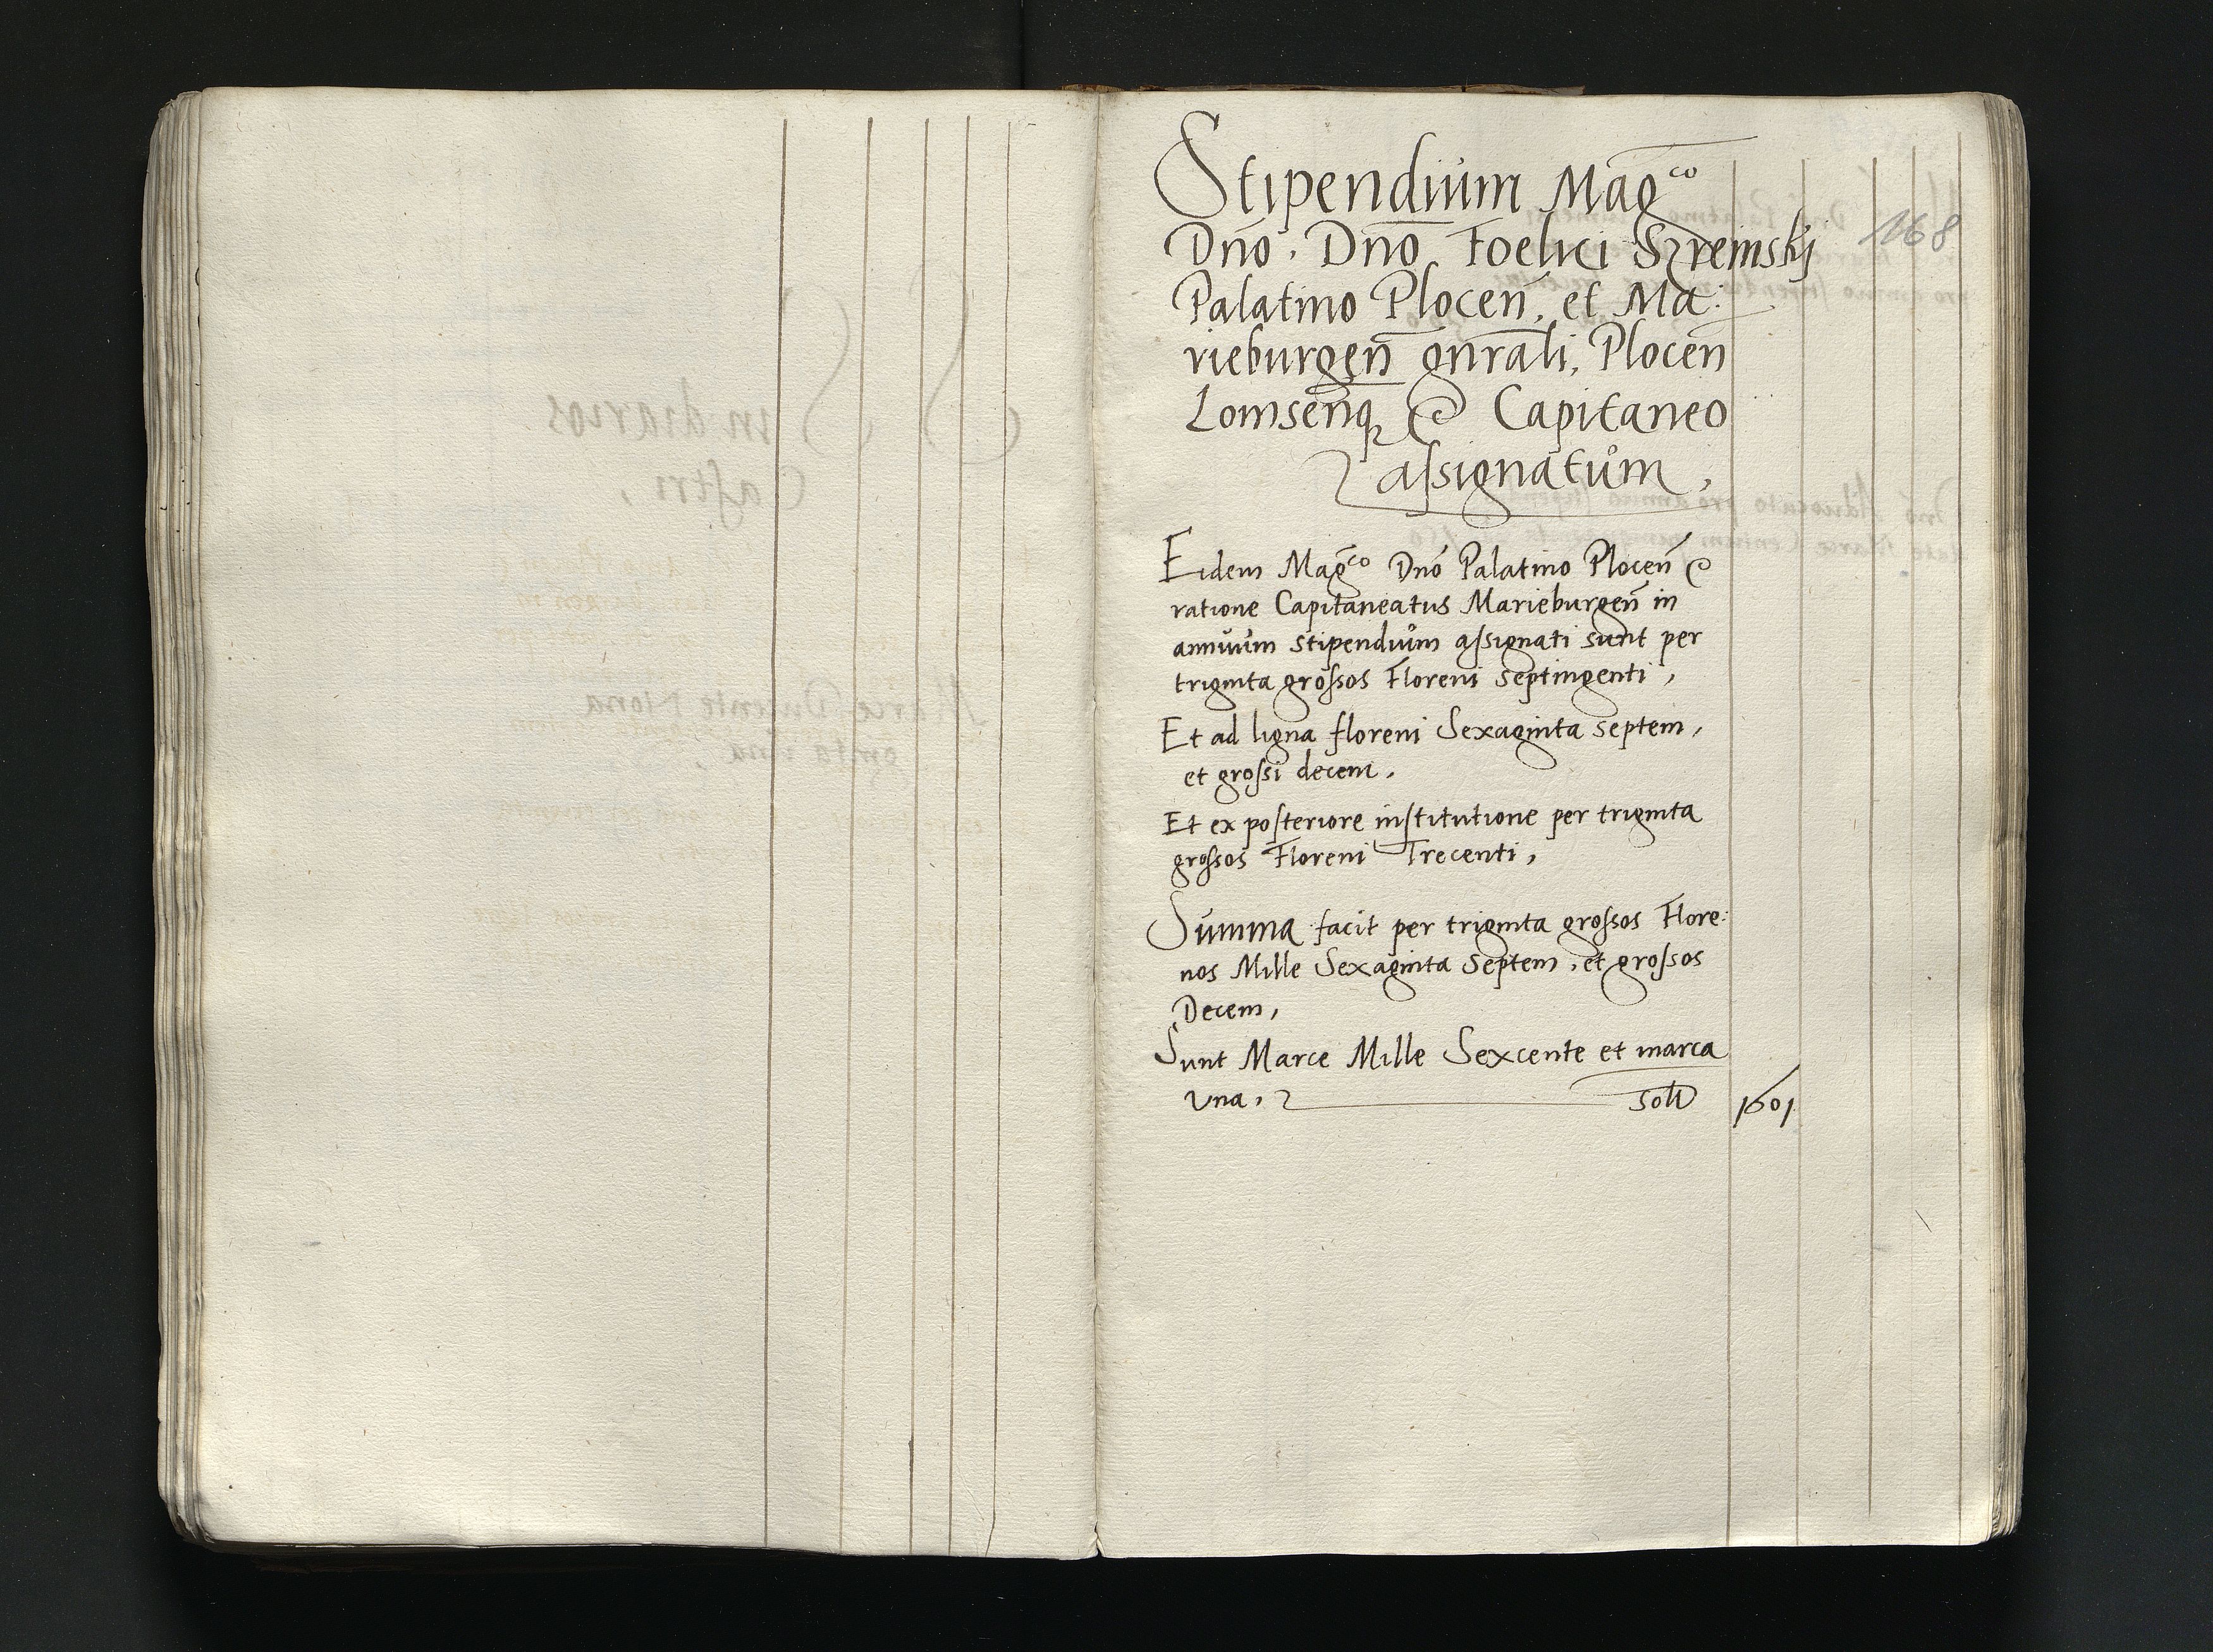 Stipendium Mag̅co
168
Dn̅o. Dn̅o Foelici Szreinskÿ
Palatino Plocen̅, et Ma:
rieburgen̅ gn̅rali, Plocen̅
Lomsenq̨ & Capitaneo
aſsignatům,
Eidem Mag̅co Dn̅o Palatino Plocen̅ &
ratione Capitaneatus Marieburgen̅ in
annuům stipendiům aſsignati sunt per
triginta groſsos Floreni septingenti,
Et ad ligna floreni Sexaginta septem,
et groſsi decem.
Et ex poſteriore inſtitutione per triginta
groſsos Floreni Trecenti,
Summa facit per triginta groſsos Flore:
nos Mille Sexaginta Septem, et groſsos
Decem,
Sunt Marce Mille Sexcente et marca
Vna,
1601